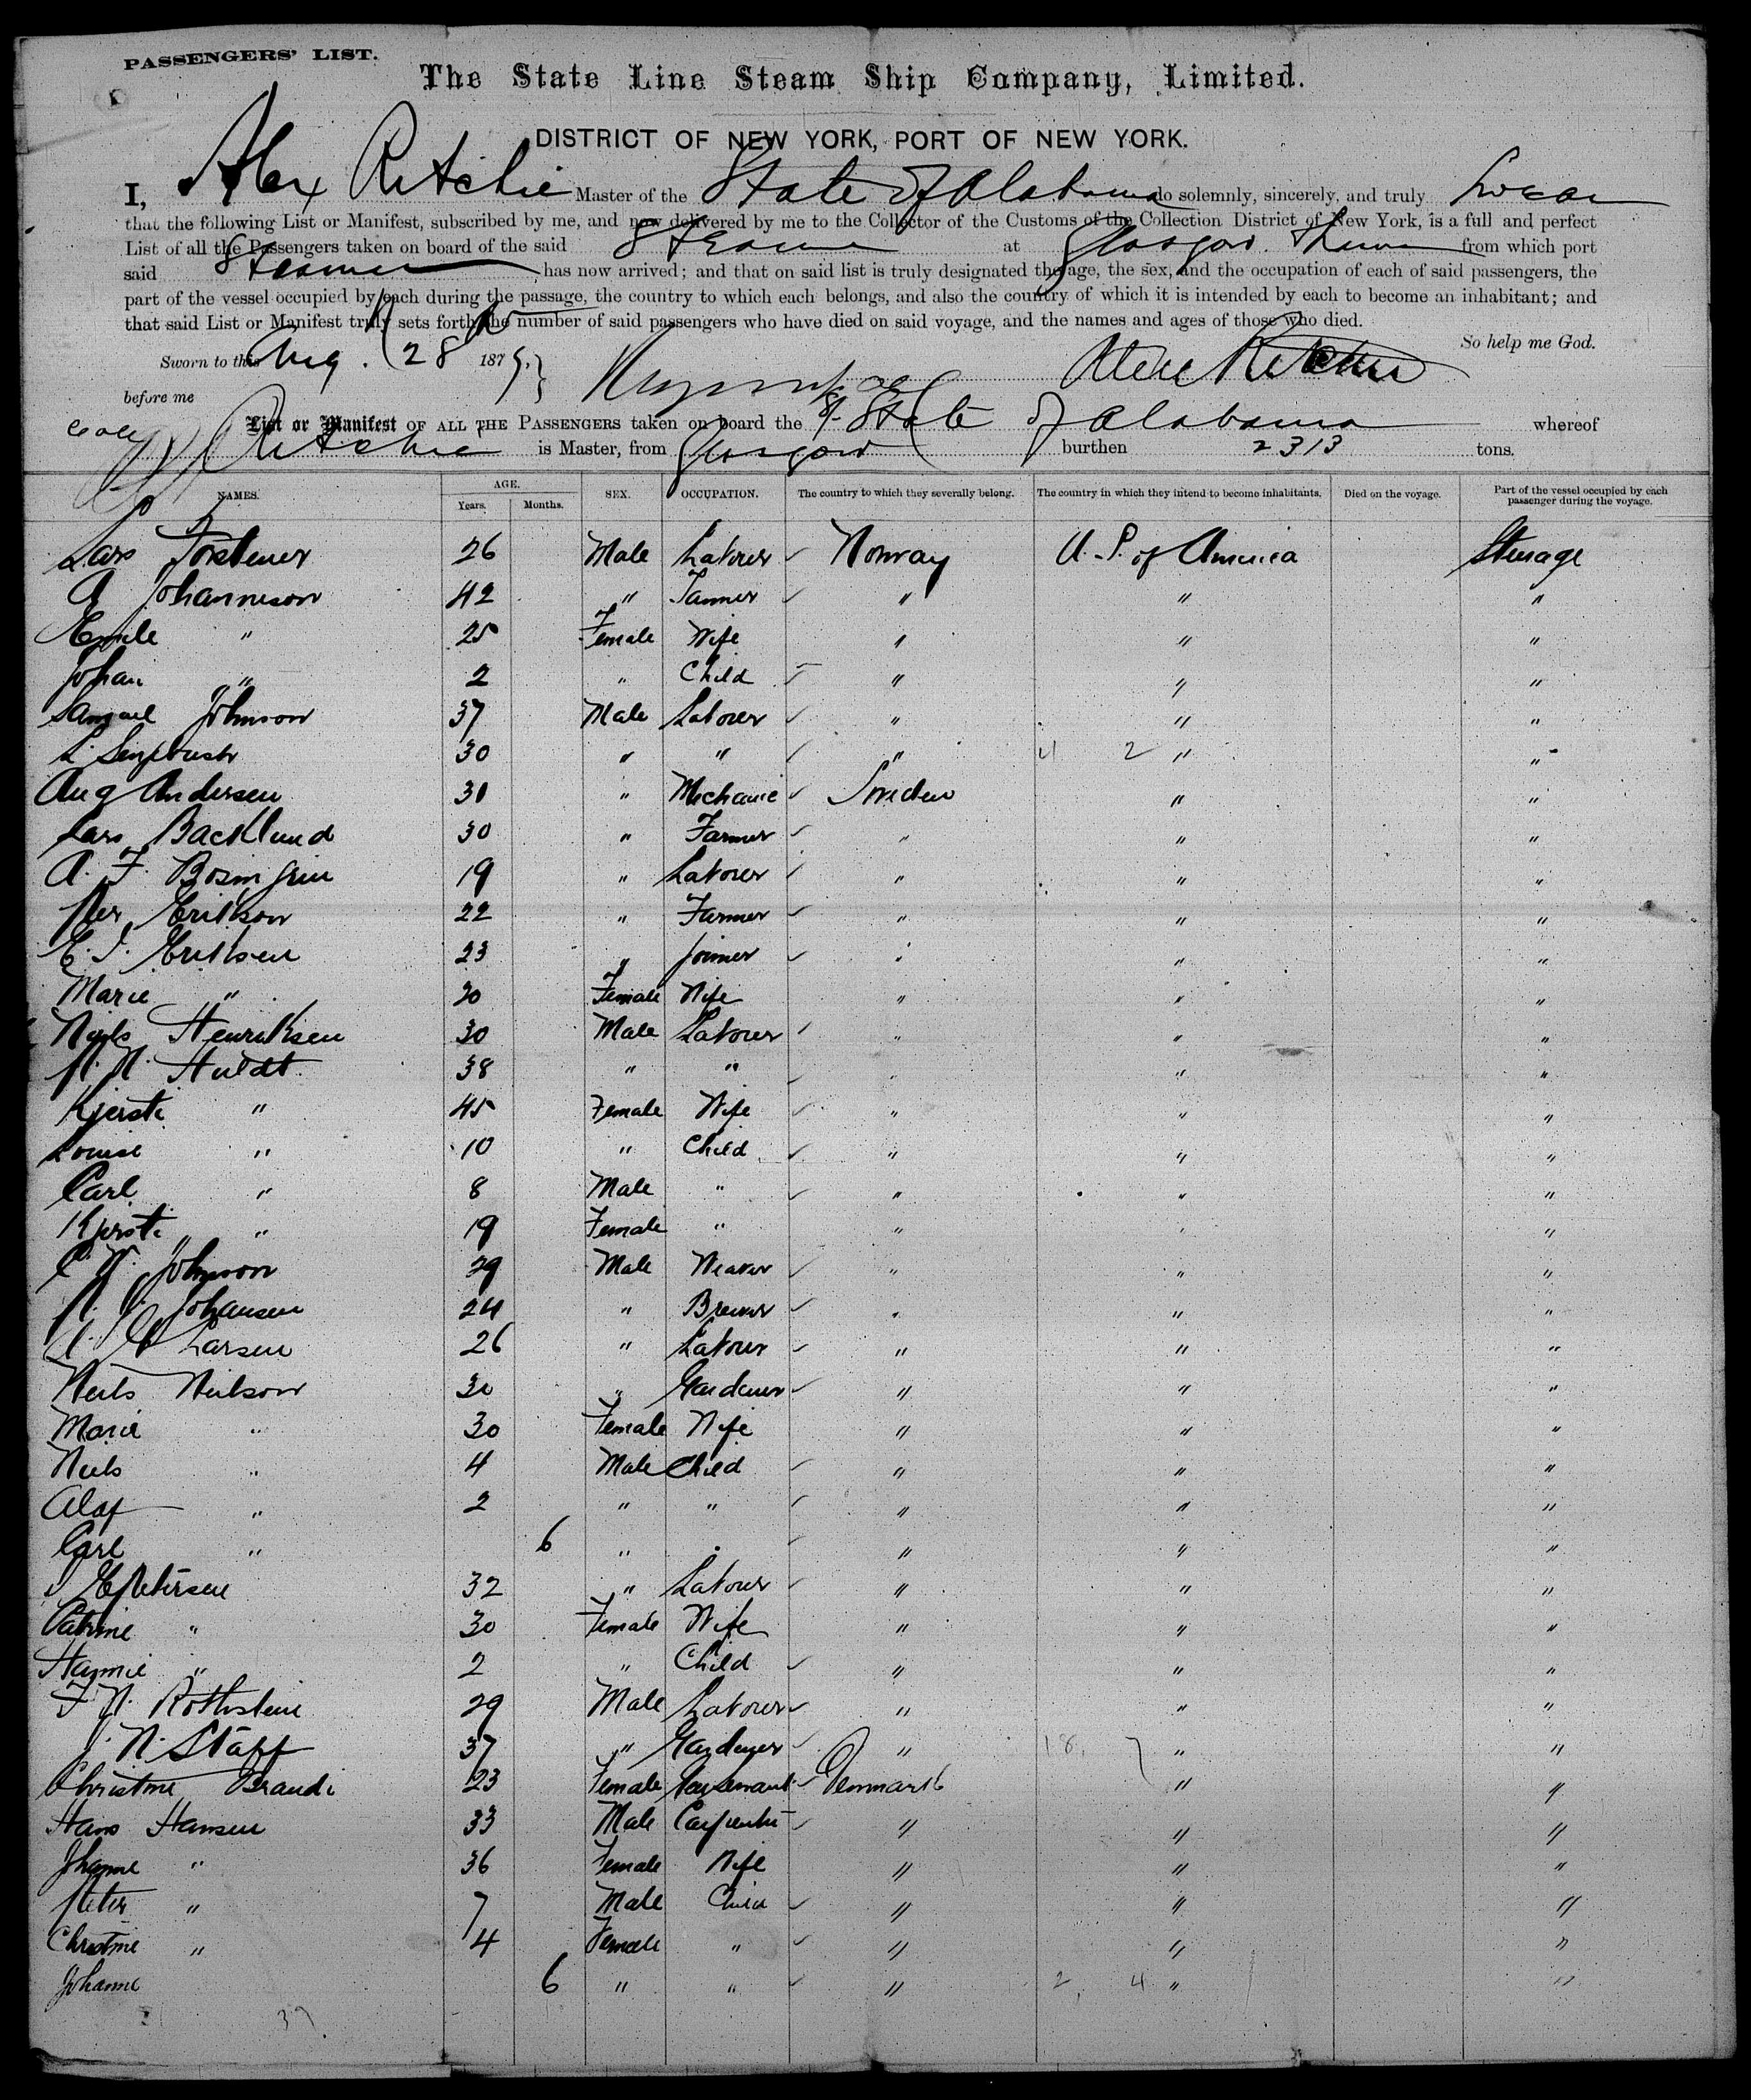 PASSENGERS' LIST.
The State Line Steam Ship Company, Limited.
DISTRICT OF NEW YORK, PORT OF NEW YORK.
I, Alex Ritchie Master of the State of Alabama do solemnly, sincerely, and truly Swear
that the following List or Manifest, subscribed by me, and now delivered by me to the Collector of the Customs of the Collection District of New York, is a full and perfect
List of all the Passengers taken on board of the said Steamer at Glasgow from which port
said Steamer has now arrived; and that on said list is truly designated the age, the sex, and the occupation of each of said passengers, the
part of the vessel occupied by each during the passage, the country to which each belongs, and also the country of which it is intended by each to become an inhabitant; and
that said List or Manifest truly sets forth the number of said passengers who have died on said voyage, and the names and ages of those who died.
So help me God.
Sworn to this Aug. 28 1879
before me
List or Manifest OF ALL THE PASSENGERS taken on board the State of Alabama whereof
Ritchie is Master, from Glasgow burthen 2313 tons.
NAMES. AGE. Years. Months. SEX. OCCUPATION. The country to which they severally belong. The country in which they intend to become inhabitants. Died on the voyage. Part of the vessel occupied by each passenger during the voyage.
Lars 26 Male Laborer Norway U.S. of America Steerage
A Johanneson 42 " " " "
Emile " 25 Female Wife " " "
Johan " 2 " Child " " "
Samuel Johnson 37 Male Laborer " " "
L. 30 " " " 4 2 " "
Aug Andersen 30 " Mechanic Sweden " "
Lars Backlund 30 " Farmer " " "
A. F. 19 " Laborer " " "
Per Erikson 22 " Farmer " " "
E. J. Eriksen 23 " Joiner " " "
Marie " 20 Female Wife " " "
Niels Henriksen 30 Male Laborer " " "
Huldt 38 " " " " "
Kjersti " 45 Female Wife " " "
Louise " 10 " Child " " "
Carl " 8 Male " " " "
Kjersti " 19 Female " " " "
Johnson 29 Male Weaver " " "
Johansen 24 " Brewer " " "
Larsen 26 " Laborer " " "
Neils Neilson 30 " Gardener " " "
Marie " 30 Female Wife " " "
Neils " 4 Male Child " " "
Olof " 2 " " " " "
Carl " 6 " " " " "
Petersen 32 " Laborer " " "
Catrine " 30 Female Wife " " "
Hannie " 2 " Child " " "
F. N. Rothstein 29 Male Laborer " " "
J. N. Staff 37 " Gardener " 18 " "
Christine Brandi 23 Female Denmark " "
Hans Hansen 33 Male Carpenter " " "
Johanne " 36 Female Wife " " "
Peter " 7 Male Child " " "
Christine " 4 Female " " " "
Johanne 6 " " " 2 4 " "
37